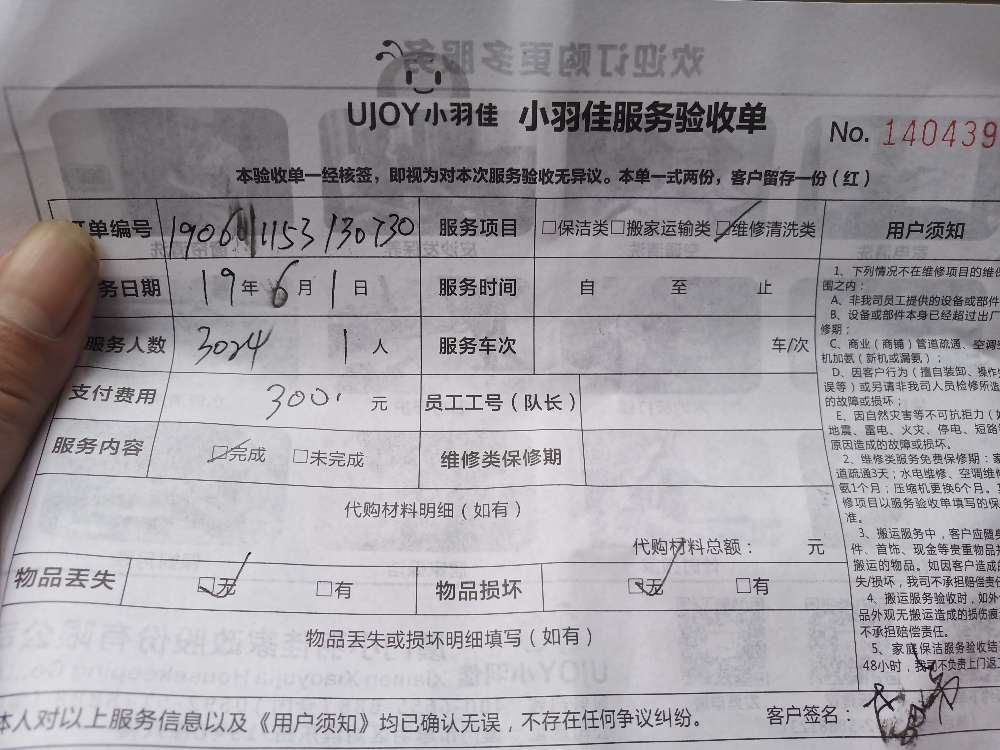 欢迎订购更多服务
UJOY小羽佳 小羽佳服务验收单
No. 140439
本验收单一经核签，即视为对本次服务验收无异议。本单一式两份，客户留存一份（红）
单编号 服务项目 □保洁类□搬家运输类□维修清洗类 用户须知
务日期 19年6月1日 服务时间 自 至 止
服务人数 3024 1人 服务车次 车/次
支付费用 300. 元 员工工号（队长）
服务内容 □完成 □未完成 维修类保修期
代购材料明细（如有）
代购材料总额： 元
物品丢失 □无 □有 物品损坏 □无 □有
物品丢失或损坏明细填写（如有）
本人对以上服务信息以及《用户须知》均已确认无误，不存在任何争议纠纷。 客户签名：
1、下列情况不在维修项目的维
围之内：
A、非我司员工提供的设备或部件
B、设备或部件本身已经超过出厂
修期；
C、商业（商铺）管道疏通、空调
机加氨（新机或漏氨）；
D、因客户行为（擅自装卸、操作
误等）或另请非我司人员检修所造
的故障或损坏；
E、因自然灾害等不可抗拒力（如
地震、雷电、火灾、停电、短路
原因造成的故障或损坏。
2、维修类服务免费保修期：家
道疏通3天；水电维修、空调维
氨1个月；压缩机更换6个月。
修项目以服务验收单填写的保
准。
3、搬运服务中，客户应随身
件、首饰、现金等贵重物品
搬运的物品。如因客户造成
失/损坏，我司不承担赔偿责任
4、搬运服务验收时，如外
品外观无搬运造成的损伤痕
不承担赔偿责任。
5、家庭保洁服务验收结
48小时，我司不负责上门返工